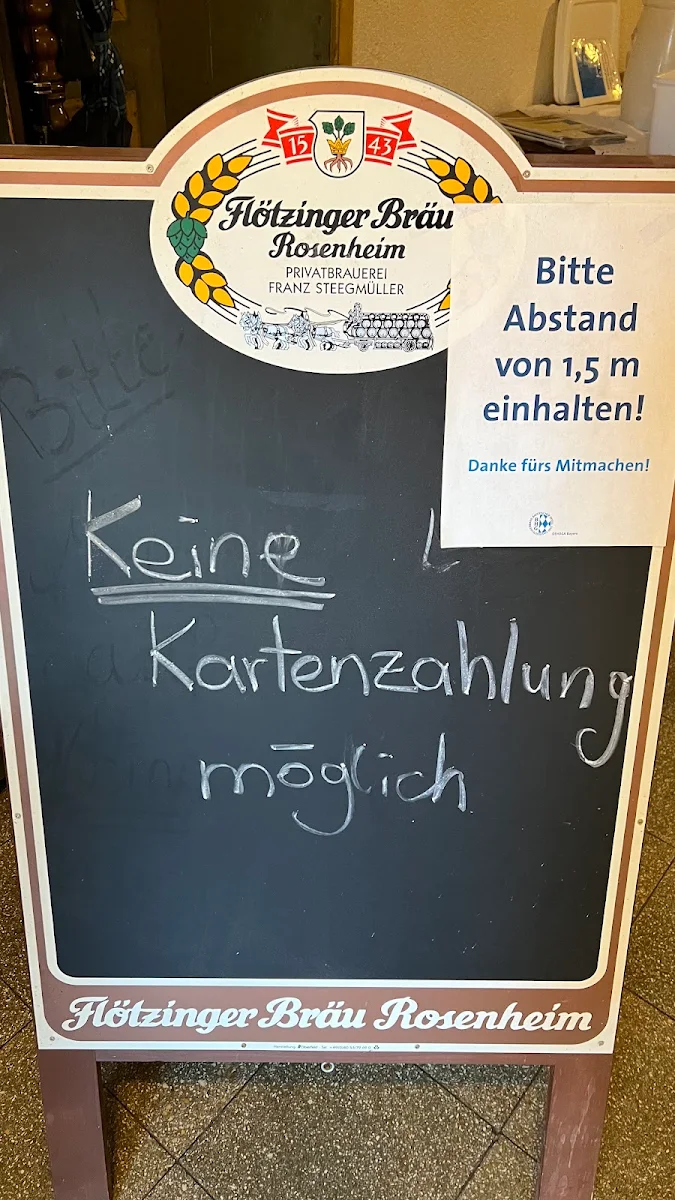 15 43
Flötzinger Bräu
Rosenheim
PRIVATBRAUEREI
FRANZ STEEGMÜLLER
Bitte
Abstand
von 1,5 m
einhalten!
Danke fürs Mitmachen!
Bitte
Keine
Kartenzahlung
möglich
Flötzinger Bräu Rosenheim